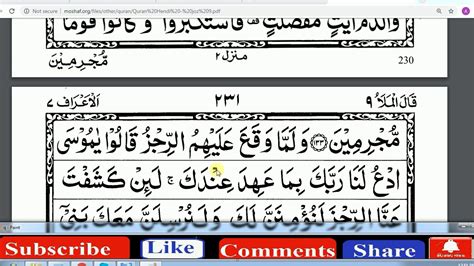 moshaf.org/files/other/quran/Quran%20Hendi%20-%20Joz%209.pdf
وَالدَّمَ اٰيٰتٍ مُّفَصَّلٰتٍ فَاسْتَكْبَرُوْا وَ كَانُوْا قَوْمًا
230 منزل ٢ مُّجْرِمِيْنَ
قَالَ الْمَلَاُ ٩ ٢٣١ اَلْاَعْرَاف ٧
مُّجْرِمِيْنَ ﴿١٣٣﴾ وَ لَمَّا وَقَعَ عَلَيْهِمُ الرِّجْزُ قَالُوْا يٰمُوْسَى
ادْعُ لَنَا رَبَّكَ بِمَا عَهِدَ عِنْدَكَ ۚ لَئِنْ كَشَفْتَ
عَنَّا الرِّجْزَ لَنُؤْمِنَنَّ لَكَ وَ لَنُرْسِلَنَّ مَعَكَ بَنِيْۤ
Subscribe Like Comments Share